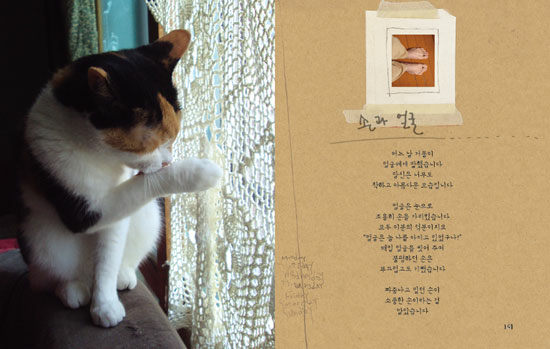 손과 얼굴
어느 날 거울이
얼굴에게 말했습니다
당신은 너무도
착하고 아름다운 모습입니다
얼굴은 눈으로
조용히 손을 가리켰습니다
모두 이분의 덕분이지요
"얼굴은 늘 나를 아끼고 있었구나!"
매일 얼굴을 씻어 주며
불평하던 손은
부끄럽고도 기뻤습니다
짜증나고 밉던 손이
소중한 손이라는 걸
알았습니다